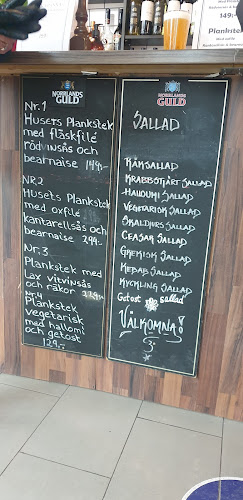 149:-
Plankstek
NORRLANDS
GULD
Nr.1
Husets Plankstek
med fläskfilé
rödvinsås och
bearnaise 149:-
NR.2
Husets Plankstek
med oxfilé
kantarellsås och
bearnaise 299:-
Nr.3
Plankstek med
Lax vitvinsås
och räkor
Nr.4
Plankstek
vegetarisk
med hallomi
och getost
129:-
NORRLANDS
GULD
SALLAD
RÄKSALLAD
KRABBSTJÄRT SALLAD
HALLOUMI SALLAD
VEGETARISK SALLAD
SKALDJURS SALLAD
CEASAR SALLAD
GREKISK SALLAD
KEBAB SALLAD
KYCKLING SALLAD
Getost sallad
VÄLKOMNA!